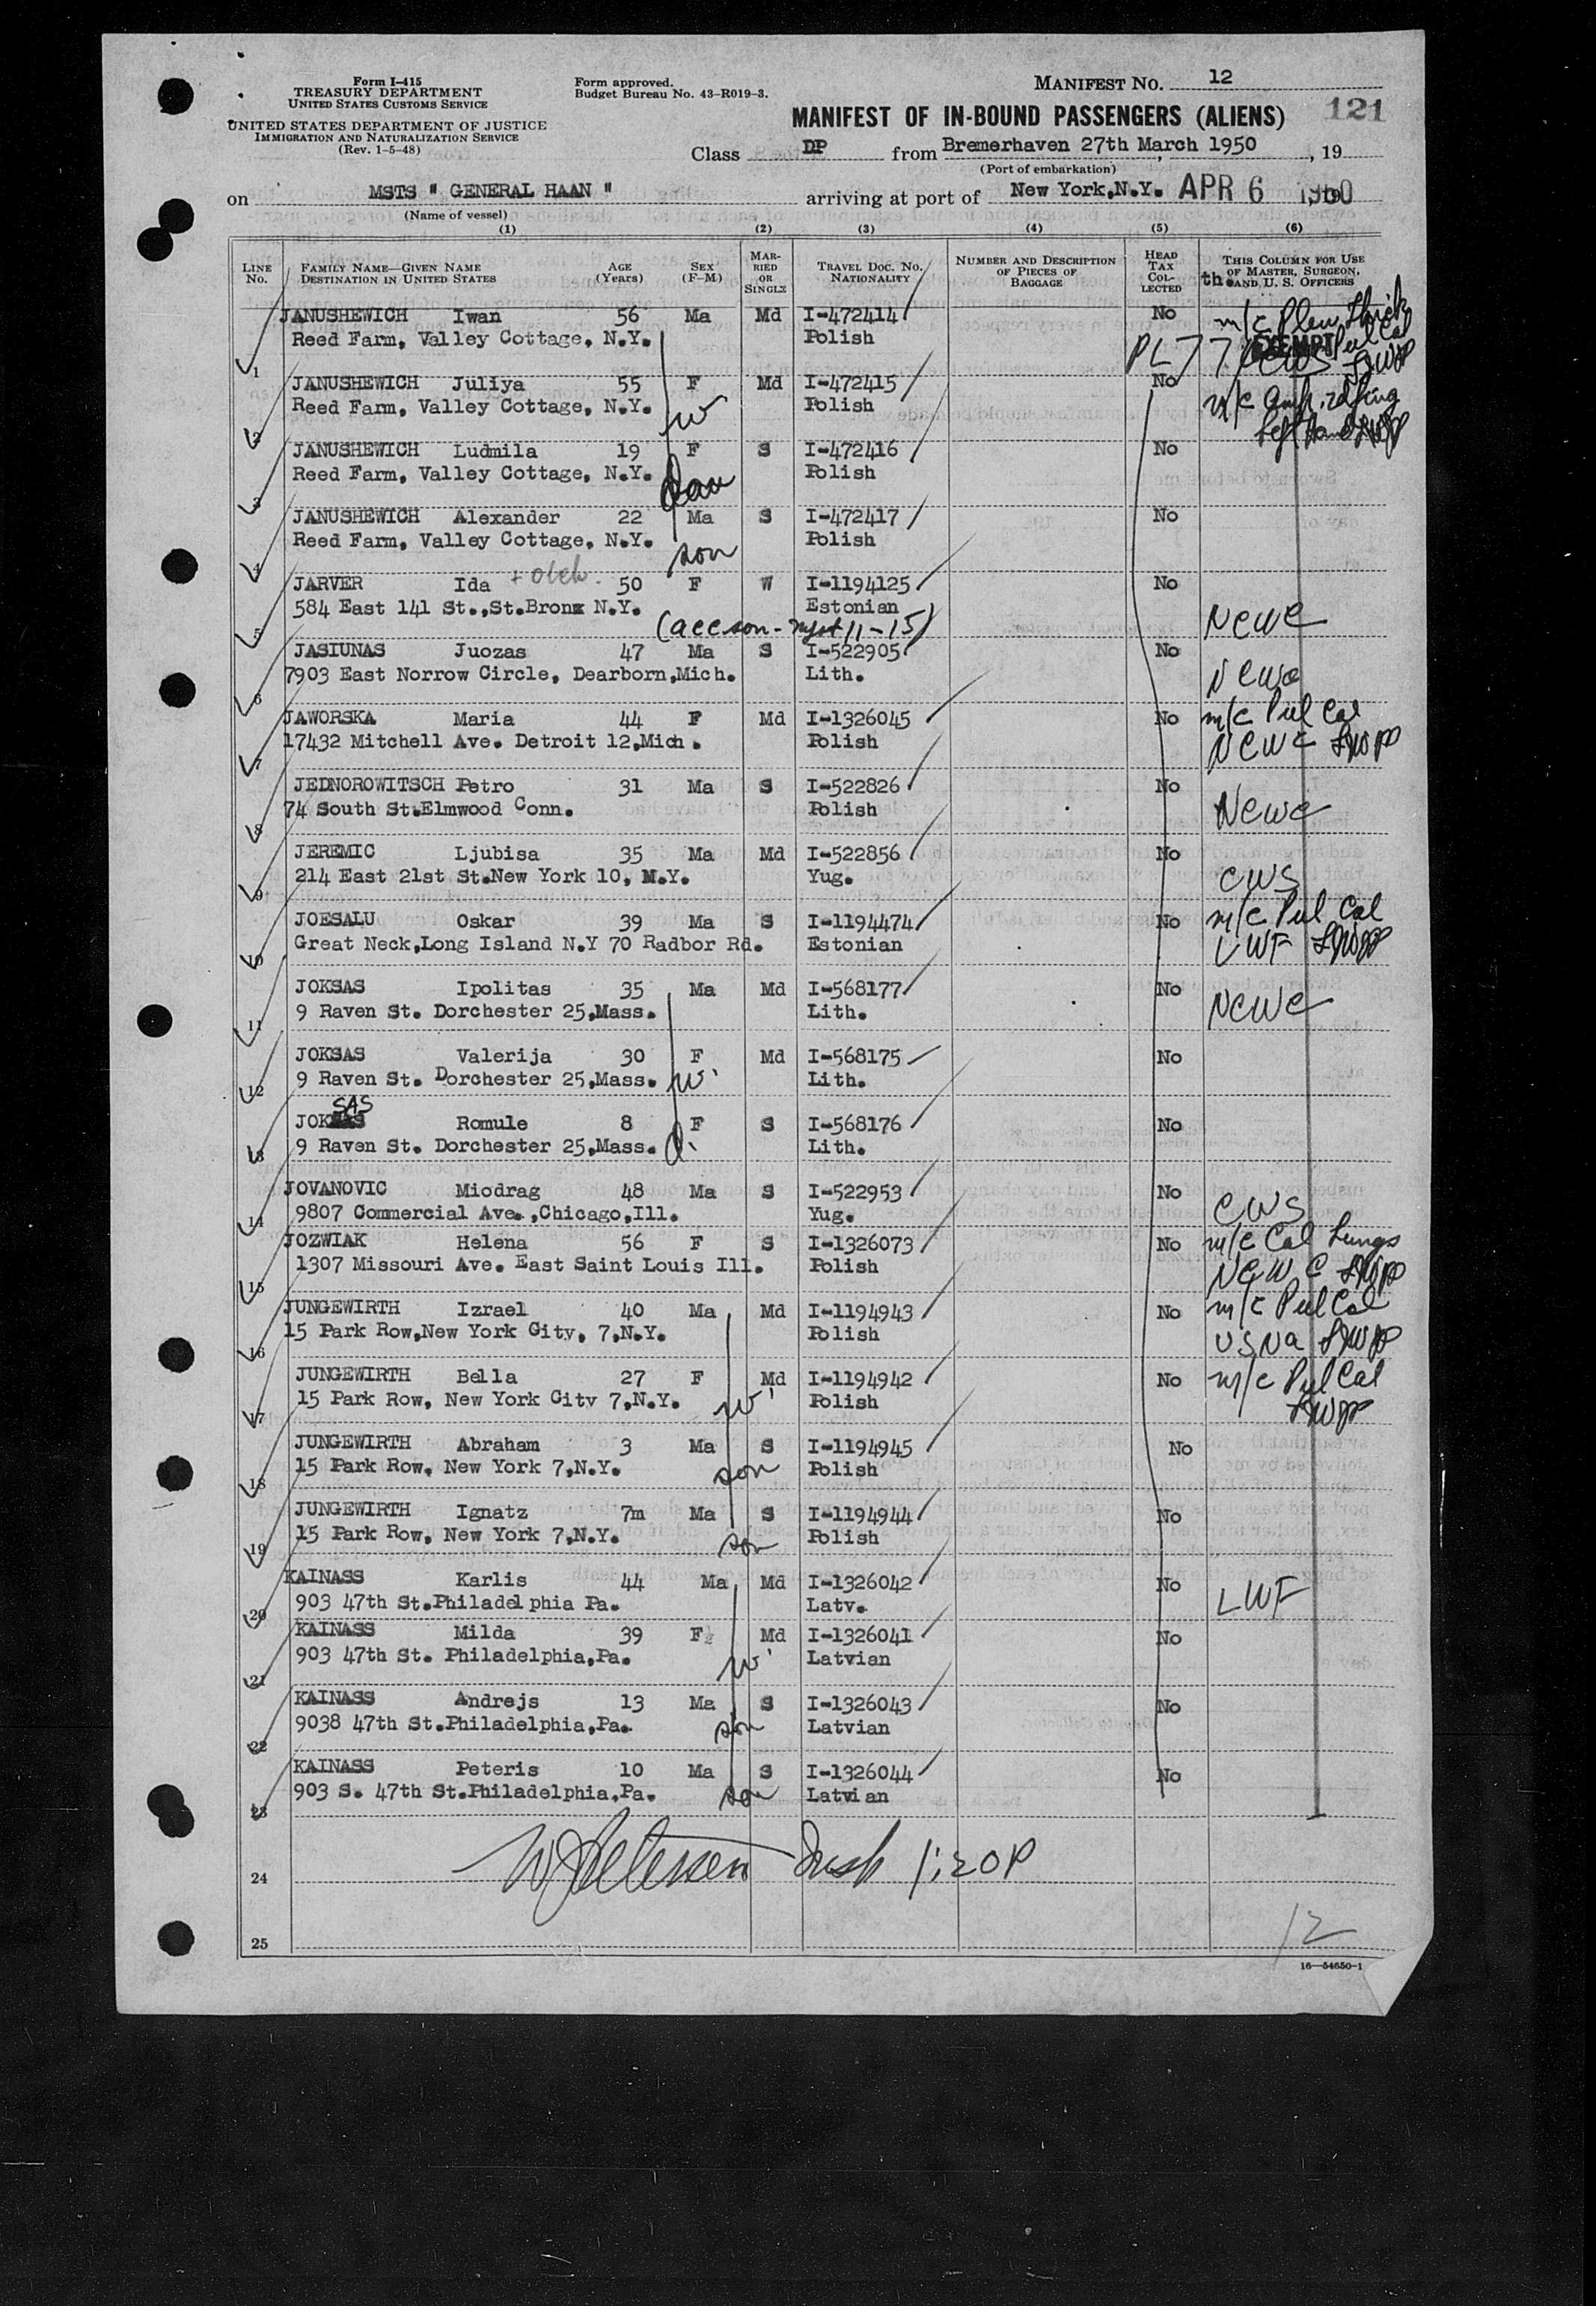 Form I-415
TREASURY DEPARTMENT
UNITED STATES CUSTOMS SERVICE
UNITED STATES DEPARTMENT OF JUSTICE
IMMIGRATION AND NATURALIZATION SERVICE
(Rev. 1-5-48)
Form approved.
Budget Bureau No. 43-R019-3.
MANIFEST NO. 12
MANIFEST OF IN-BOUND PASSENGERS (ALIENS) 121
Class DP from Bremerhaven 27th March 1950, 19
(Port of embarkation)
on MSTS " GENERAL HAAN " arriving at port of New York,N.Y. APR 6 1950
(Name of vessel)
(1) (2) (3) (4) (5) (6)
LINE No. FAMILY NAME—GIVEN NAME DESTINATION IN UNITED STATES AGE (Years) SEX (F-M) MARRIED OR SINGLE TRAVEL DOC. No. NATIONALITY NUMBER AND DESCRIPTION OF PIECES OF BAGGAGE HEAD TAX COLLECTED THIS COLUMN FOR USE OF MASTER, SURGEON, AND U. S. OFFICERS
JANUSHEWICH Iwan 56 Ma Md I-472414 No m/c Pleu Thick
1 Reed Farm, Valley Cottage, N.Y. Polish PL 77 EXEMPT Pul Cal CWS
JANUSHEWICH Juliya 55 F Md I-472415 No
2 Reed Farm, Valley Cottage, N.Y. w Polish m/c Amp. Left hand
JANUSHEWICH Ludmila 19 F S I-472416 No
3 Reed Farm, Valley Cottage, N.Y. dau Polish
JANUSHEWICH Alexander 22 Ma S I-472417 No
4 Reed Farm, Valley Cottage, N.Y. son Polish
JARVER Ida 50 F W I-1194125 No
5 584 East 141 St.,St.Bronx N.Y. Estonian NCWC
(acc son - 11-15)
JASIUNAS Juozas 47 Ma S I-522905 No
6 7903 East Norrow Circle, Dearborn,Mich. Lith. NCWC
JAWORSKA Maria 44 F Md I-1326045 No m/c Pul Cal
7 17432 Mitchell Ave. Detroit 12,Mich. Polish NCWC
JEDNOROWITSCH Petro 31 Ma S I-522826 No
8 74 South St.Elmwood Conn. Polish NCWC
JEREMIC Ljubisa 35 Ma Md I-522856 No
9 214 East 21st St.New York 10, M.Y. Yug. CWS
JOESALU Oskar 39 Ma S I-1194474 No m/c Pul Cal
10 Great Neck,Long Island N.Y 70 Radbor Rd. Estonian LWF
JOKSAS Ipolitas 35 Ma Md I-568177 No
11 9 Raven St. Dorchester 25,Mass. Lith. NCWC
JOKSAS Valerija 30 F Md I-568175 No
12 9 Raven St. Dorchester 25,Mass. w Lith.
SAS
JOK Romule 8 F S I-568176 No
13 9 Raven St. Dorchester 25,Mass. d. Lith.
JOVANOVIC Miodrag 48 Ma S I-522953 No
14 9807 Commercial Ave.,Chicago,Ill. Yug. CWS
JOZWIAK Helena 56 F S I-1326073 No m/c Cal Lungs
15 1307 Missouri Ave. East Saint Louis Ill. Polish NCWC
JUNGEWIRTH Izrael 40 Ma Md I-1194943 No m/c Pul Cal
16 15 Park Row,New York City, 7,N.Y. Polish USNA
JUNGEWIRTH Bella 27 F Md I-1194942 No m/c Pul Cal
17 15 Park Row, New York City 7,N.Y. w Polish
JUNGEWIRTH Abraham 3 Ma S I-1194945 No
18 15 Park Row, New York 7,N.Y. son Polish
JUNGEWIRTH Ignatz 7m Ma S I-1194944 No
19 15 Park Row, New York 7,N.Y. son Polish
KAINASS Karlis 44 Ma Md I-1326042 No
20 903 47th St.Philadelphia Pa. Latv. LWF
KAINASS Milda 39 F Md I-1326041 No
21 903 47th St. Philadelphia,Pa. w Latvian
KAINASS Andrejs 13 Ma S I-1326043 No
22 9038 47th St.Philadelphia,Pa. son Latvian
KAINASS Peteris 10 Ma S I-1326044 No
23 903 S. 47th St.Philadelphia,Pa. son Latvian
24 W Petersen Insp 1:20P
12
25
16—54650-1